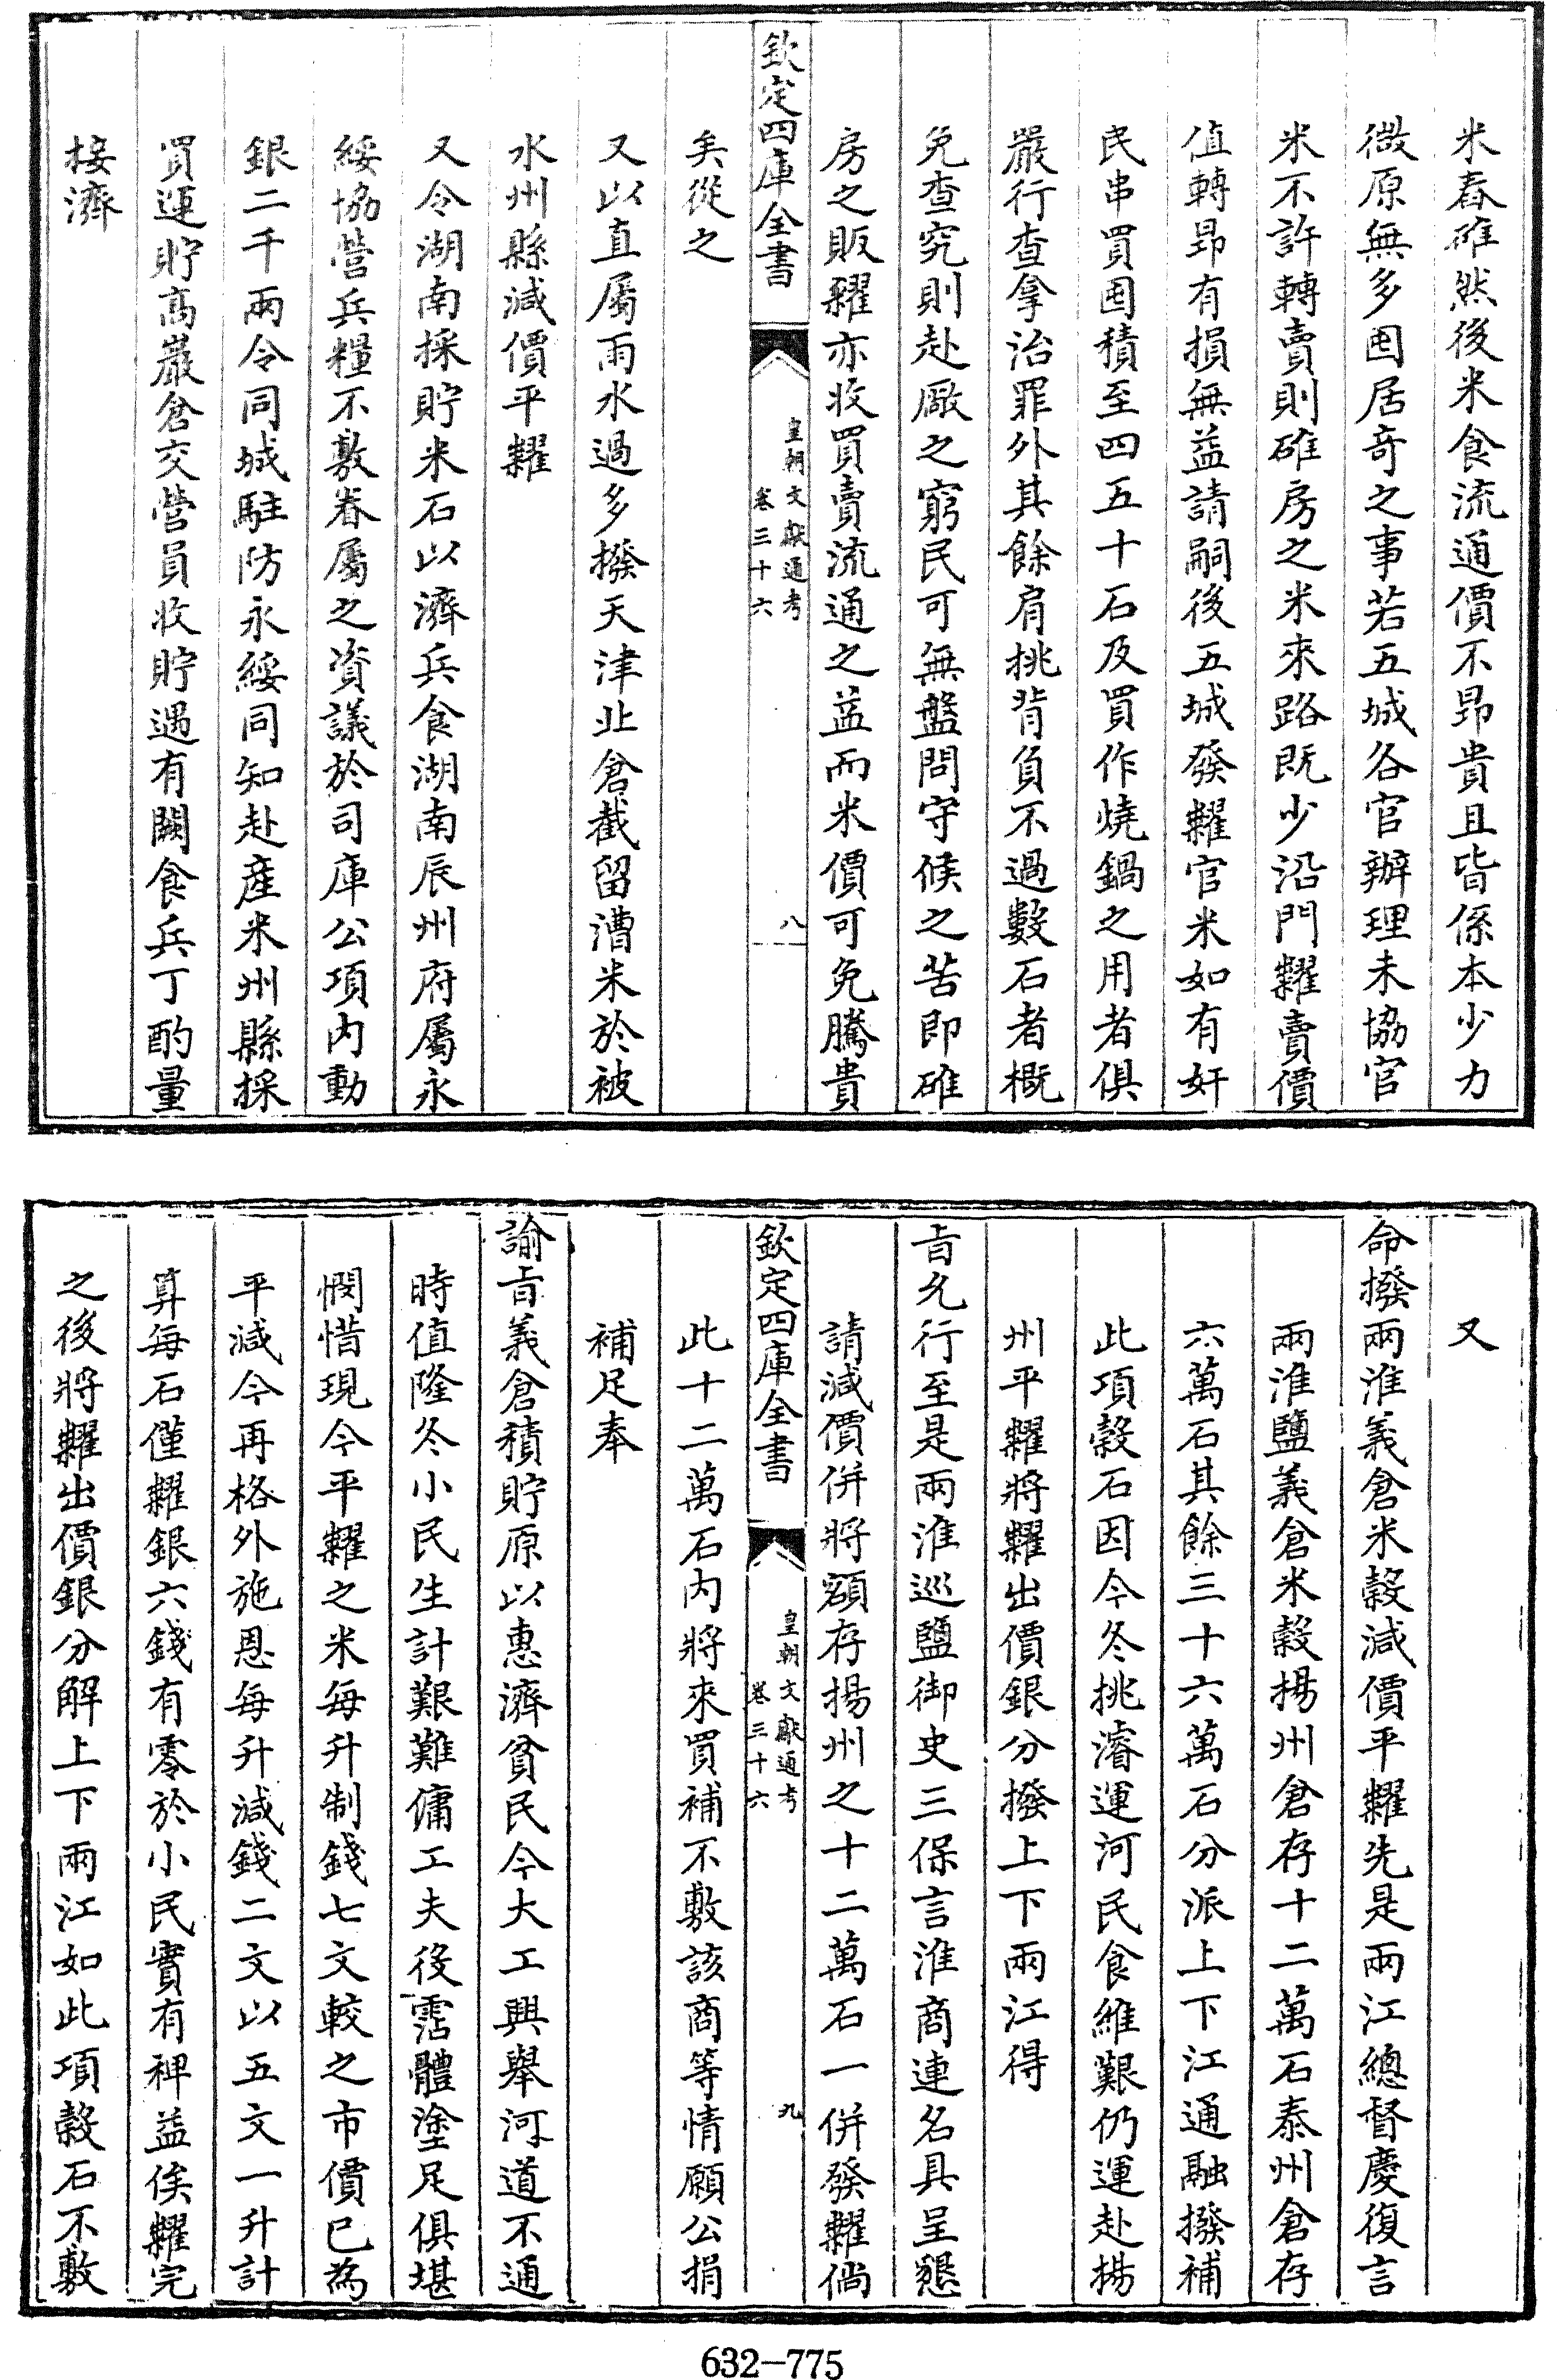 米舂碓然後米食流通價不昻貴且皆係本少力
微原無多囤居奇之事若五城各官辦理未協官
米不許轉賣則碓房之米來路既少沿門糶賣價
值轉昻有損無益請嗣後五城發糶官米如有奸
民串買囤積至四五十石及買作燒鍋之用者俱
嚴行查拿治罪外其餘肩挑背負不過數石者概
免查究則赴厰之窮民可無盤問守候之苦即碓
房之販糶亦收買賣流通之益而米價可免騰貴
欽定四庫全書
皇朝文獻通考
卷三十六
八
矣從之
又以直屬雨水過多撥天津北倉截留漕米於被
水州縣減價平糶
又令湖南採貯米石以濟兵食湖南辰州府屬永
綏協營兵糧不敷眷屬之資議於司庫公項内動
銀二千兩令同城駐防永綏同知赴產米州縣採
買運貯高巖倉交營員收貯遇有闕食兵丁酌量
接濟
又
命撥兩淮義倉米穀減價平糶先是兩江總督慶復言
兩淮鹽義倉米穀揚州倉存十二萬石泰州倉存
六萬石其餘三十六萬石分派上下江通融撥補
此項穀石因今冬挑濬運河民食維艱仍運赴揚
州平糶將糶出價銀分撥上下兩江得
旨允行至是兩淮巡鹽御史三保言淮商連名具呈懇
請減價併將額存揚州之十二萬石一併發糶倘
欽定四庫全書
皇朝文獻通考
卷三十六
九
此十二萬石内將來買補不敷該商等情願公捐
補足奉
諭旨義倉積貯原以惠濟貧民今大工興舉河道不通
時值隆冬小民生計艱難傭工夫役霑體塗足俱堪
憫惜現今平糶之米每升制錢七文較之市價已為
平減今再格外施恩每升減錢二文以五文一升計
算每石僅糶銀六錢有零於小民實有裨益俟糶完
之後將糶出價銀分解上下兩江如此項穀石不敷
632-775